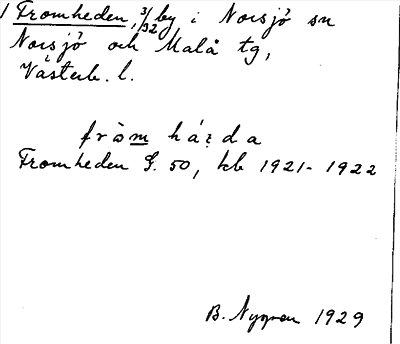 1 Fromheden, 3/32 by i Norsjö sn
Norsjö och Malå tg,
Västerb. l.
fròm háɛda
Fromheden G. 50, kb 1921-1922
B. Nygren 1929